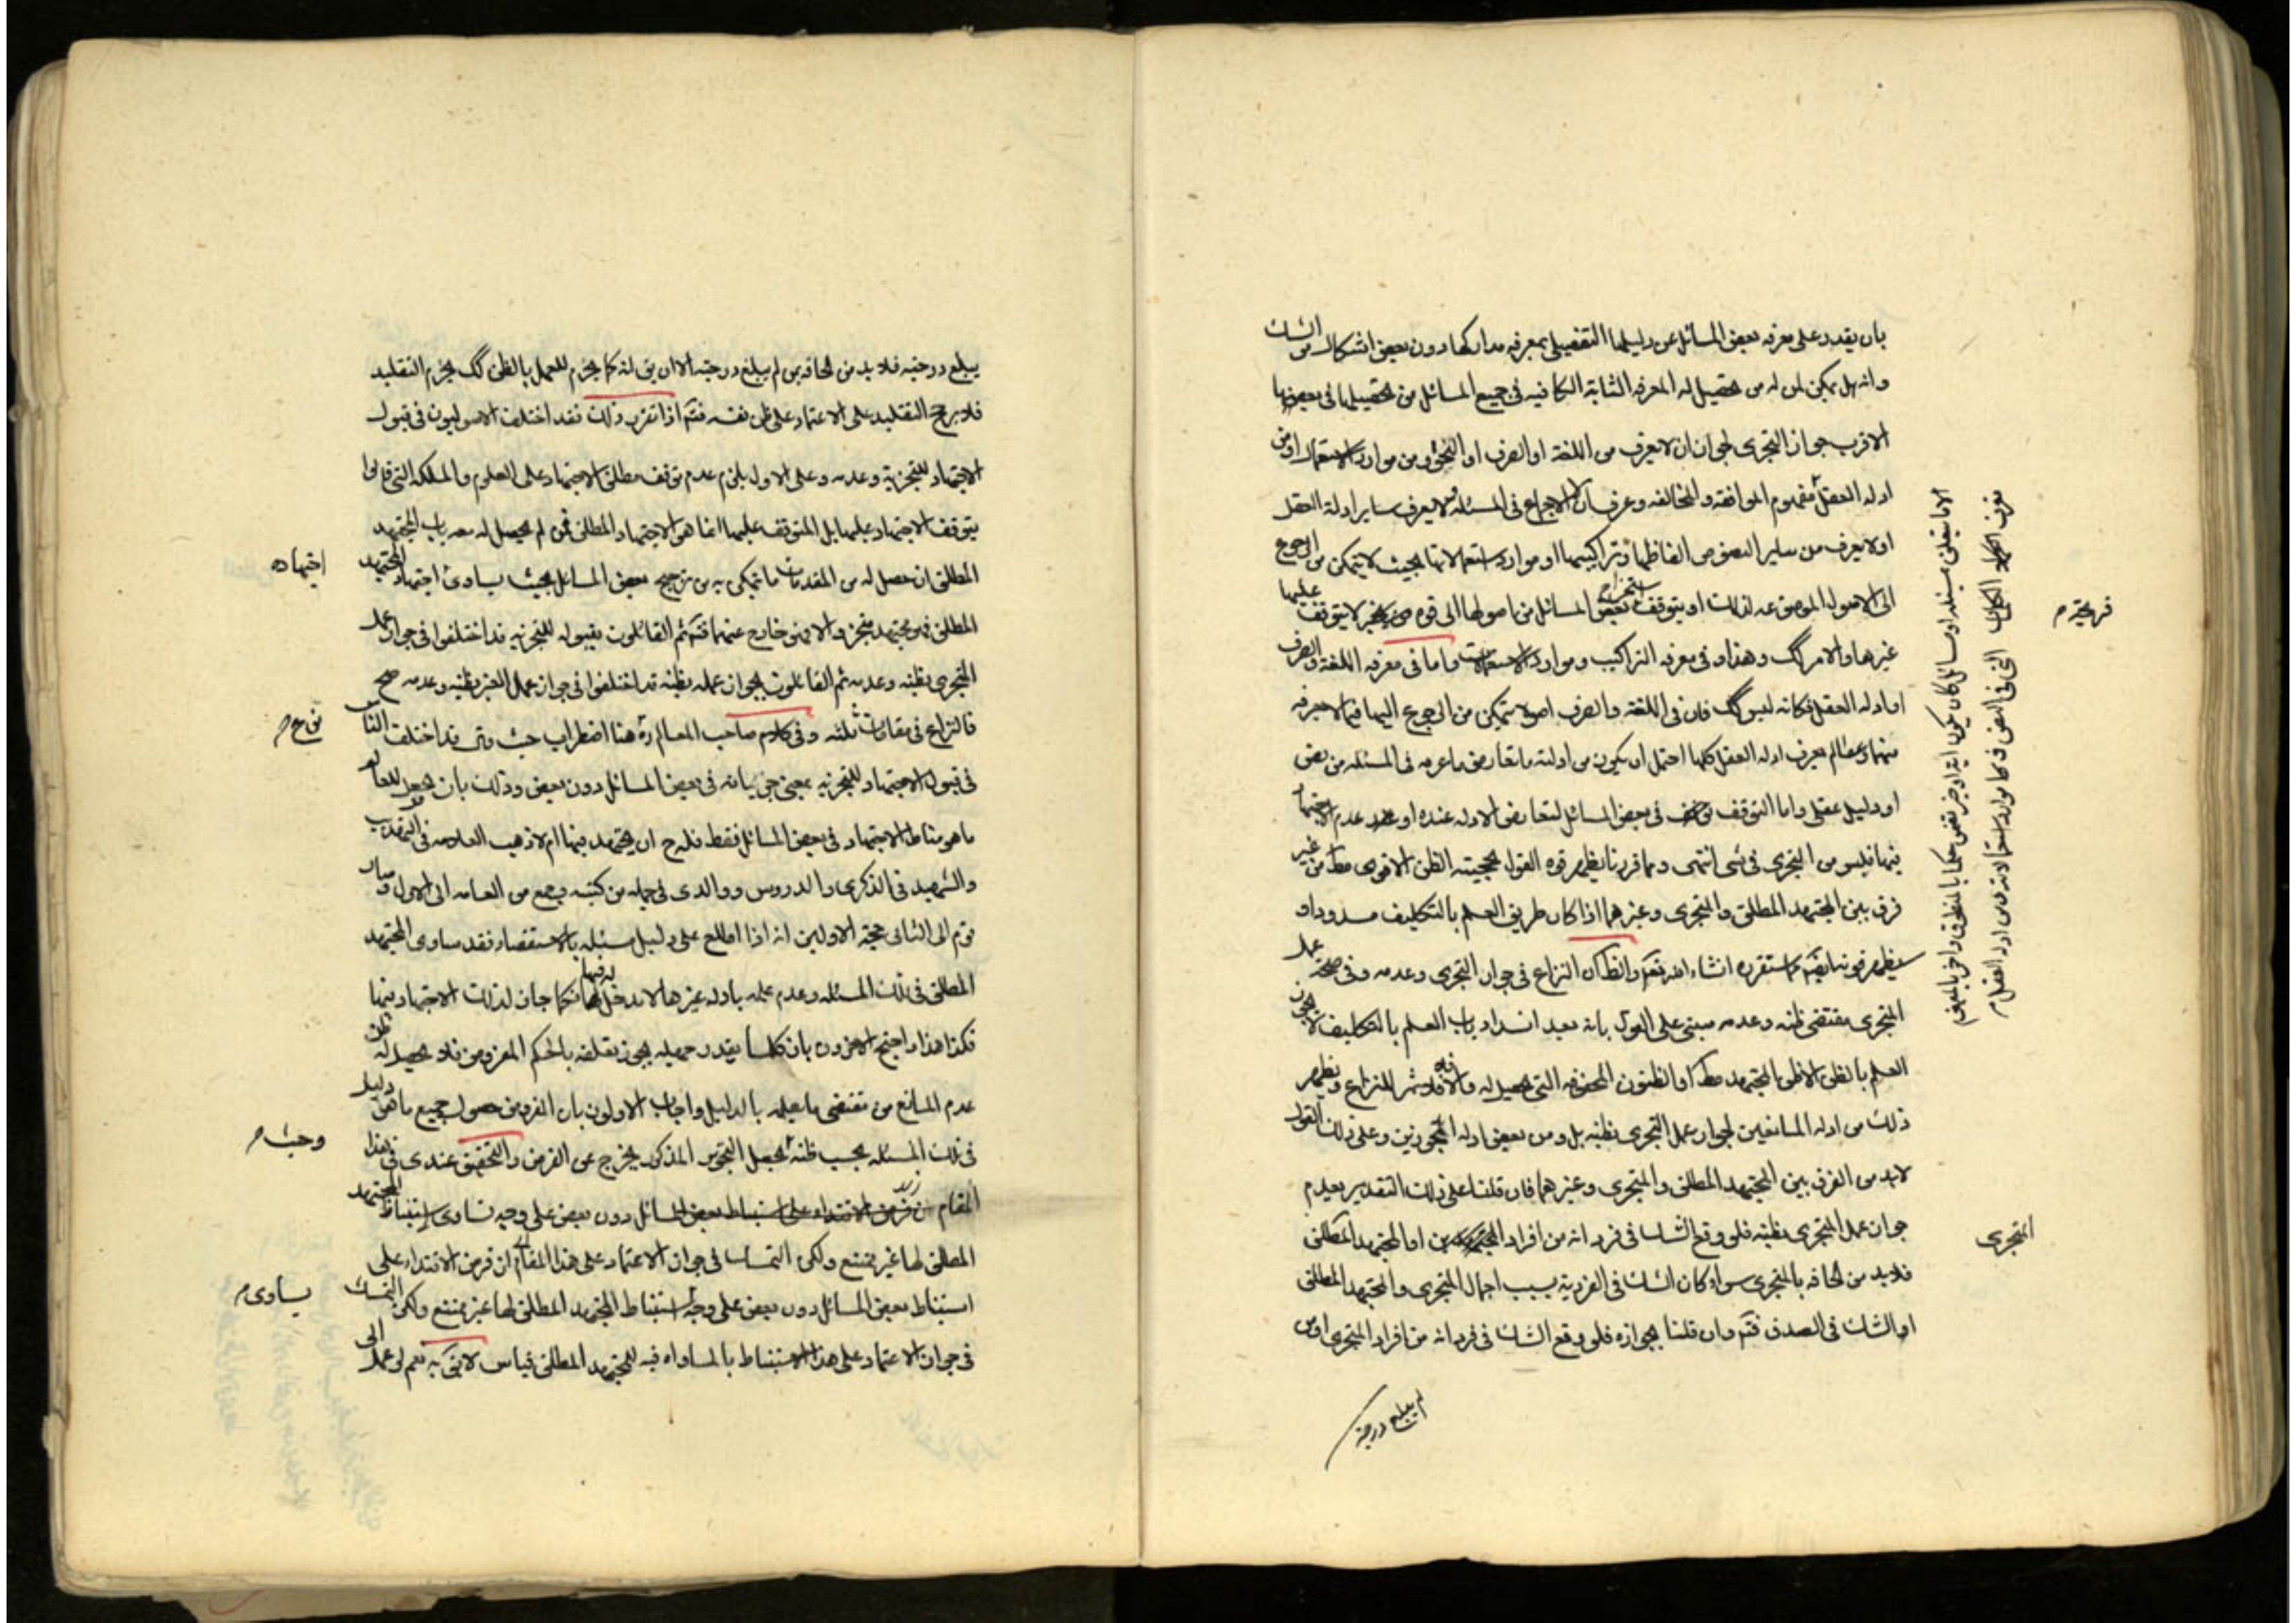 بان يقدر على معرفه بعض المسائل عن دليلها التفصيلى بمعرفه مداركها دون بعض اشكال من الشك
وانه هل يمكن لمن له من تحصيل له المعرفه الثابتة الكافيه فى جميع المسائل من تحصيلها فى بعضها
الاقرب جواز التجزى لجواز ان لا يعرف من اللغة او الصرف او النحو ومن موارد الاستعمال او من
ادله العقل مفهوم الموافقه والمخالفه وعرف ان الاجماع فى المسئله ولا يعرف ساير ادلة العقل
اولا يعرف من ساير النصوص الفاظها وتراكيبها او موارد استعمالاتها بحيث لا يتمكن من الرجوع
الى الاصول الموضوعه لذلك او يتوقف استخراج بعض المسائل من اصولها الى قوه لا يتوقف عليها
غيرها والامر كك وهذا و فى معرفه التراكيب وموارد الاستعمالات واما فى معرفه اللغة والصرف
او ادله العقل فكانه ليس كك فان فى اللغة والصرف اصولا يتمكن من الرجوع اليها فيما لا يعرفه
منهما وما لم يعرف ادله العقل كلها احتمل ان يكون من ادلته ما يعارض ما عرفه فى المسئله من نص
او دليل عقلى واما التوقف فى بعض المسائل لتعارض الادله عنده او عدم الاجتهاد
فيها فليس من التجزى فى شئ انتهى ومما قررنا يظهر قوه القول بحجيته الظن الاقوى مطلقا من غير
فرق بين المجتهد المطلق والمتجزى وغيرهما اذا كان طريق العلم بالتكليف مسدودا و
سيظهر قوته ايضا مما ستقره انشاء الله تعالى والظ كان النزاع فى جواز التجزى وعدمه وفى صحة عمل
المتجزى بمقتضى ظنه وعدمه مبنى على القول بانه بعد انسداد باب العلم بالتكليف لا يجوز
العلم بالظن الا ظن المجتهد مطلقا او الظنون المخصوصه التى تحصيل له والا فلا ثمر للنزاع فيه ويظهر
ذلك من ادله المانعين لجواز عمل المتجزى بظنه بل ومن بعض ادله المجوزين وعلى ذلك القول
لابد من الفرق بين المجتهد المطلق والمتجزى وغيرهما فان قلنا على ذلك التقدير بعدم
جواز عمل المتجزى بظنه فلو وقع الشك فى فرد انه من افراد المتجزى او المجتهد المطلق
فلابد من الحاقه بالمتجزى سواء كان الشك فى الفردية بسبب اجمال المتجزى والمجتهد المطلق
او الشك فى الصدق فتم وان قلنا بجوازه فلو وقع الشك فى فرد انه من افراد المتجزى او من
لم يبلغ درجة
المتجزى
يبلغ درجته فلابد من الحاقه بمن لم يبلغ درجته الا ان يق انه كما يحرم للعمل بالظن كك يحرم التقليد
فلا يرجح التقليد على الاعتماد على ظن نفسه فتم اذا تقرر ذلك فقد اختلف الاصوليون فى قبول
الاجتهاد للتجزية وعدمه وعلى الاول يلزم عدم توقف مطلق الاجتهاد على العلوم والملكه التى قالوا
يتوقف الاجتهاد عليها بل المتوقف عليها انما هو الاجتهاد المطلق فمن لم يحصل له المجتهد
المطلق ان حصل له من المقدمات ما تمكن به من ترجيح بعض المسائل بحيث يساوى اجتهاد المجتهد
اجتهاده
المطلق فهو مجتهد متجز والا فهو خارج عنهما فتم ثم القائلون بقبوله للتجزيه قد اختلفوا فى جواز عمل
المتجزى بظنه وعدمه ثم القائلون بجواز عمله بظنه قد اختلفوا فى جواز عمل الغير بظنه وعدمه
فالنزاع فى مقامات ثلثه وفى كلام صاحب المعالم ره هنا اضطراب حيث قال قد اختلف الناس
فى قبول الاجتهاد للتجزيه بمعنى جريانه فى بعض المسائل دون بعض وذلك بان يحصل للعالم
ما هو مناط الاجتهاد فى بعض المسائل فقط فله ح ان يجتهد فيها ام لا ذهب العلامه فى التهذيب
والشهيد فى الذكرى والدروس ووالدى فى جمله من كتبه وجمع من العامه الى الاول وصار
قوم الى الثانى حجة الاولين انه اذا اطلع على دليل مسئله بالاستقصاء فقد ساوى المجتهد
المطلق فى تلك المسئله وعدم علمه بادله غيرها لا مدخل له فيها فكما جاز لذلك الاجتهاد فيها
فكذا هذا واحتج الاخرون بان كلما يقدر جهله يجوز تعلقه بالحكم المفروض فلا يحصل له ظن
عدم المانع من مقتضى ما يعلمه بالدليل واجاب الاولون بان الفروض حصول جميع ما هو دليل
فى تلك المسئله بحسب ظنه وحيث يحصل التجويز المذكور يخرج عن الفرض والتحقيق عندى فى هذا
المقام ان فرض الاقتدار على استنباط بعض المسائل دون بعض على وجه تساوى استنباط المجتهد
المطلق لها غير ممتنع ولكن التمسك فى جواز الاعتماد على هذا المقام ان فرض الاقتدار على
استنباط بعض المسائل دون بعض على وجه يساوى استنباط المجتهد المطلق لها غير ممتنع ولكن التمسك
فى جواز الاعتماد على هذا الاستنباط بالمساواه فيه للمجتهد المطلق قياس لا نقول به نعم لو علم الى